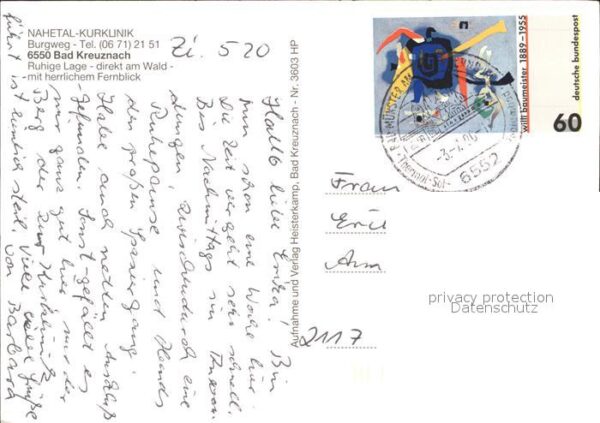 NAHETAL-KURKLINIK
Burgweg - Tel. (06 71) 21 51
6550 Bad Kreuznach
Ruhige Lage - direkt am Wald -
- mit herrlichem Fernblick
Zi. 520
Hallo liebe Erika! Bin
nun schon eine Woche hier
Die Zeit vergeht sehr schnell.
Bis Nachmittags im
dungen, zwischendurch eine
Ruhepause und
den großen Spaziergang.
Habe auch netten Anschluß
gefunden. Sonst gefällt es
mir ganz gut hier, nur der
Berg der zur Kurklinik
führt ist ziemlich steil. Viele liebe Grüße
von Barbara
Aufnahme und Verlag Heisterkamp, Bad Kreuznach - Nr. 3603 HP
willi baumeister 1889-1955
deutsche bundespost
60
BAD MÜNSTER AM
- Thermal-Sol-
6552
Frau
Am
2117
privacy protection
Datenschutz